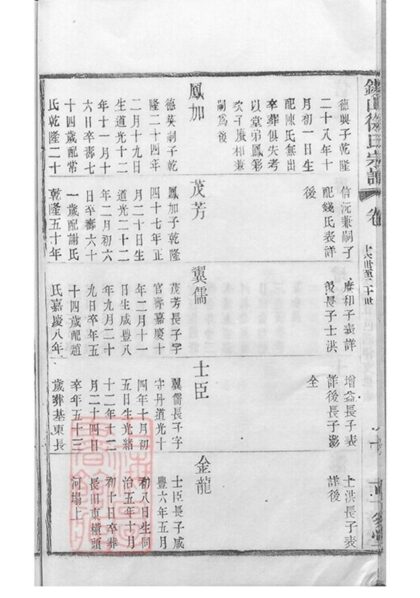 徐氏宗譜
卷
德興子乾隆
二十八年十
月初一日生
配陳氏無出
卒葬俱失考
以堂弟鳳彩
次子廣和兼
嗣為後
鳳加
德英嗣子乾
隆二十四年
二月十九日
生道光十二
年十一月十
六日卒壽七
十四歲配常
氏乾隆二十
信沅兼嗣子
配錢氏表詳
後
茂芳
鳳加子乾隆
四十七年正
月二十日生
道光二十二
年二月初六
日卒壽六十
一歲配謝氏
乾隆五十年
廣和子表詳
後長子士洪
翼儒
茂芳長子字
官齊嘉慶十
年二月十一
日生咸豐八
年九月二十
九日卒年五
十四歲配趙
氏嘉慶八年
增益長子表
詳後長子澎
全
士臣
翼儒長子字
守丹道光十
四年十月初
五日生光緒
十二年十二
月二十四日
卒年五十三
歲葬基東長
士洪長子表
詳後
金龍
士臣長子咸
豐六年五月
初八日生同
治五年十月
初十日卒葬
長田東橫頭
河塲上